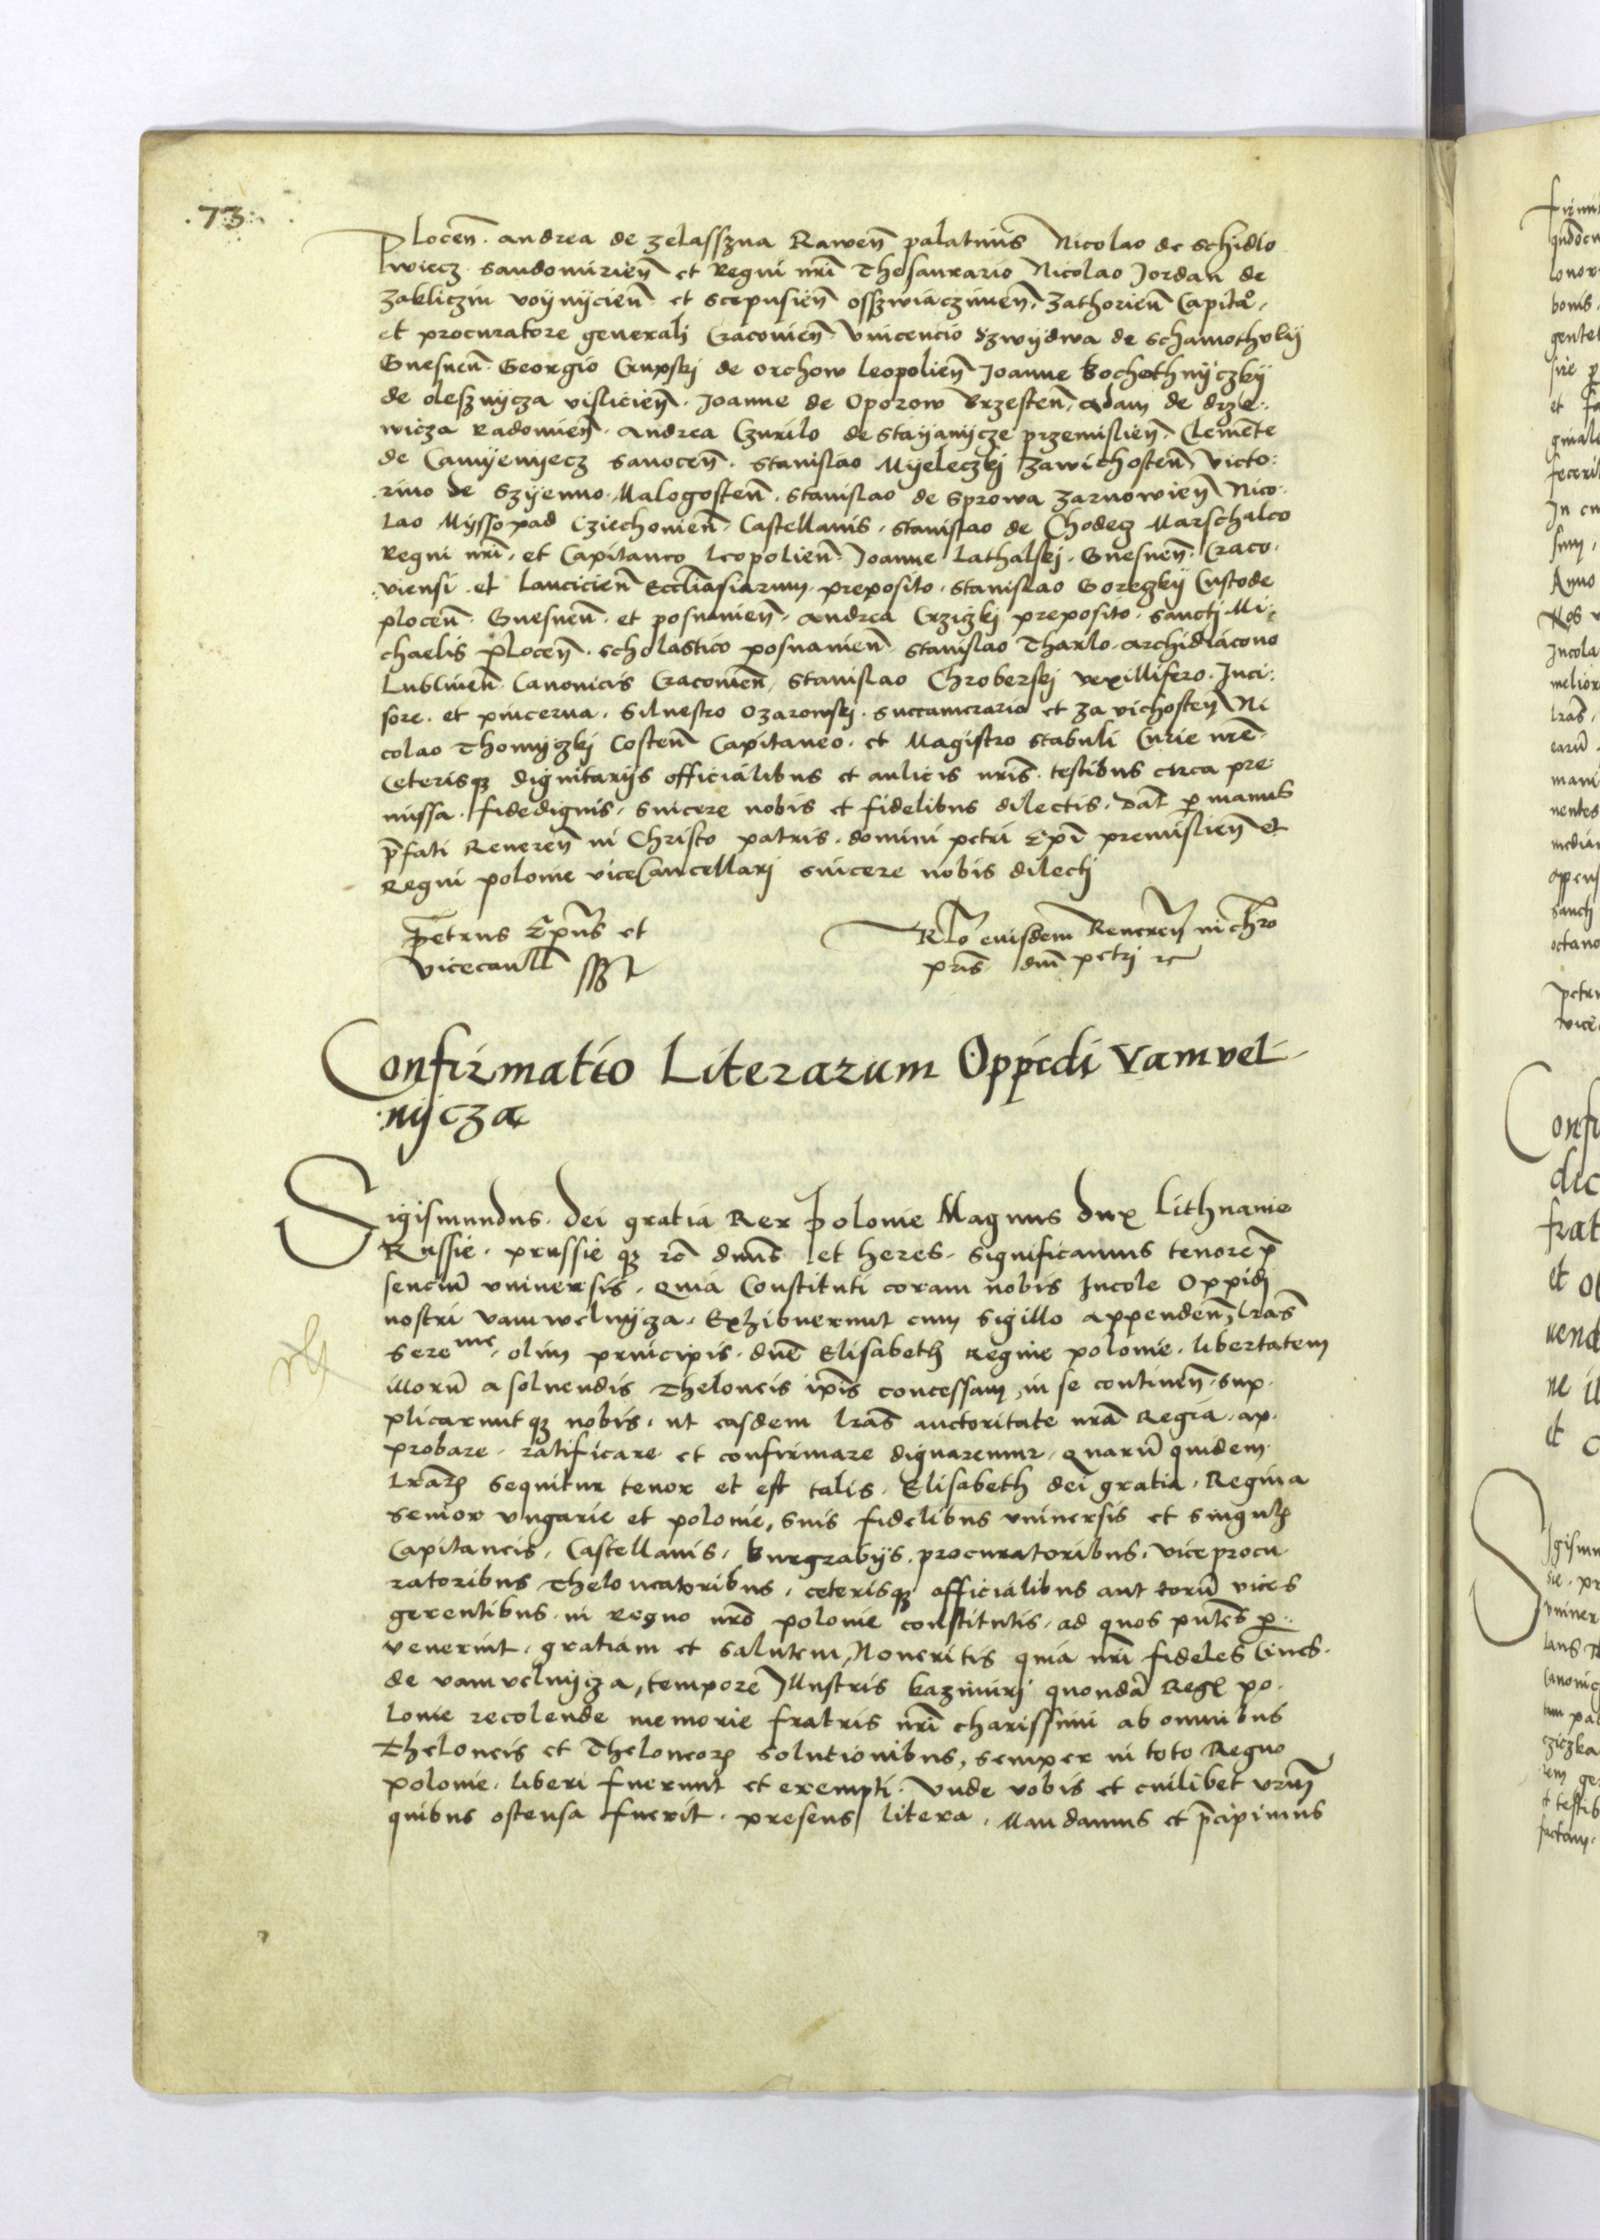 .73.
Plocen̄. Andrea de Zelasszna Rawen̄ palatinis Nicolao de Schidlo
wiecz. Sandomirien̄ et Regni nr̄i Thesaurario Nicolao Jordan de
Zakliczin voÿnÿcien̄ et scepusien̄ osszwiaczimen̄. Zathorien̄ Capita͛.
et procuratore generali Cracovien̄ Vincencio Szwÿdwa de Schamothvlÿ
Gnesnen̄. Georgio Crupskj de Orchow leopolien̄ Joanne Kochethnÿczkÿ
de olesznÿcza visliciēn. Joanne de Oporow Brzesten̄. Adam de drze..
wicza Radomien̄. Andrea Czurilo de Staÿanÿcze przemislien̄. Clemēte
de Camÿenÿecz Sanocen̄. Stanislao Mÿeleczkj Zawichosten̄ Victo:
rino de Szÿenno. Malogosten̄. Stanislao de Sprowa Zarnowien̄ Nico.
lao Mÿssopad Cziechonien̄. Castellanis. Stanislao de Chodecz Marschalco
Regni nr̄i. et Capitaneo leopolien̄. Joanne Lathalskj. Gnesnen̄. Craco.
viensi. et lancicien̄ Eccl̄iasiarum. preposito. Stanislao Goreczkÿ Custode
plocen̄. Gnesnen̄. et posnanien̄. Andrea Crziczkj preposito. Sancti Mi:
chaelis plocen̄. scholastico posnanien̄ Stanislao Tharlo. Archidiacono
Lublinen̄ Canonicis Cracovien̄. Stanislao Chroberskj vexillifero. Inci:
sore. et pincerna. Siluestro Ozarowskj. Succamerario et Zavichosten̄ Ni
colao Thomÿczkj Costen̄ Capitaneo. et Magistro stabuli Curie nr̄e.
Ceterisqꝫ dignitarÿs officialibus et aulicis nr̄is. testibus circa pre:
missa. fidedignis. sincere nobis et fidelibus dilectis. Dat̄ ꝑ manus
p̄fati Reueren̄ in Christo patris. domini petri Ep̄i premislien̄ et
Regni polonie viceCancellarj sincere nobis dilectj
Petrus Ep̄us et
vicecanll̄ sszt
Rl̄o eiusdem Reueren̄ in chr̄o
pr̄is dn̄i petrj rc
Confirmatio Literarum Oppidi Vamvel
nÿcza
Sigismundus. Dei gratia Rex Polonie Magnus dux Lithuanie
Russie. prussie qꝫ rc̄ dn̄us et heres. Significamus tenore p̄
senciū vniuersis. Quia Constituti coram nobis Incole Oppidj
nostri vamwelnÿcza. Exhibuerunt cum sigillo appenden̄. lr̄as
Sereme. olim principis. dn̄e Elisabeth Regine polonie. libertatem
illorū a soluendis Theloneis ip̄is concessam, in se continen̄. sup.
plicaruntqꝫ nobis. ut easdem lr̄as auctoritate nr̄a Regia. ap.
probare. ratificare et confirmare dignaremur. Quarū quidem
lr̄aꝝ sequitur tenor et est talis. Elisabeth dei gratia. Regina
Senior Vngarie et polonie, suis fidelibus vniuersis et singul̄
Capitaneis, Castellanis, burgrabÿs. procuratoribus. viceprocu
ratoribus Theloneatoribus. ceterisqꝫ officialibus aut eorū vices
gerentibus. in Regno nr̄o polonie constitutis. ad quos pn̄tes ꝑ..
venerint. gratiam et salutem, Noueritis quia nr̄i fideles Ciues.
de vamvelnÿcza, tempore Illustris kazimirj quondā Regl̄ po.
lonie recolende memorie fratris nr̄i charissimi ab omnibus
Theloneis et Theloneoꝝ solutionibus, semper in toto Regno
polonie. liberi fuerunt et exempti. Vnde vobis et cuilibet vr̄um
quibus ostensa fuerit. presens litera. Mandamus et p̄cipimus